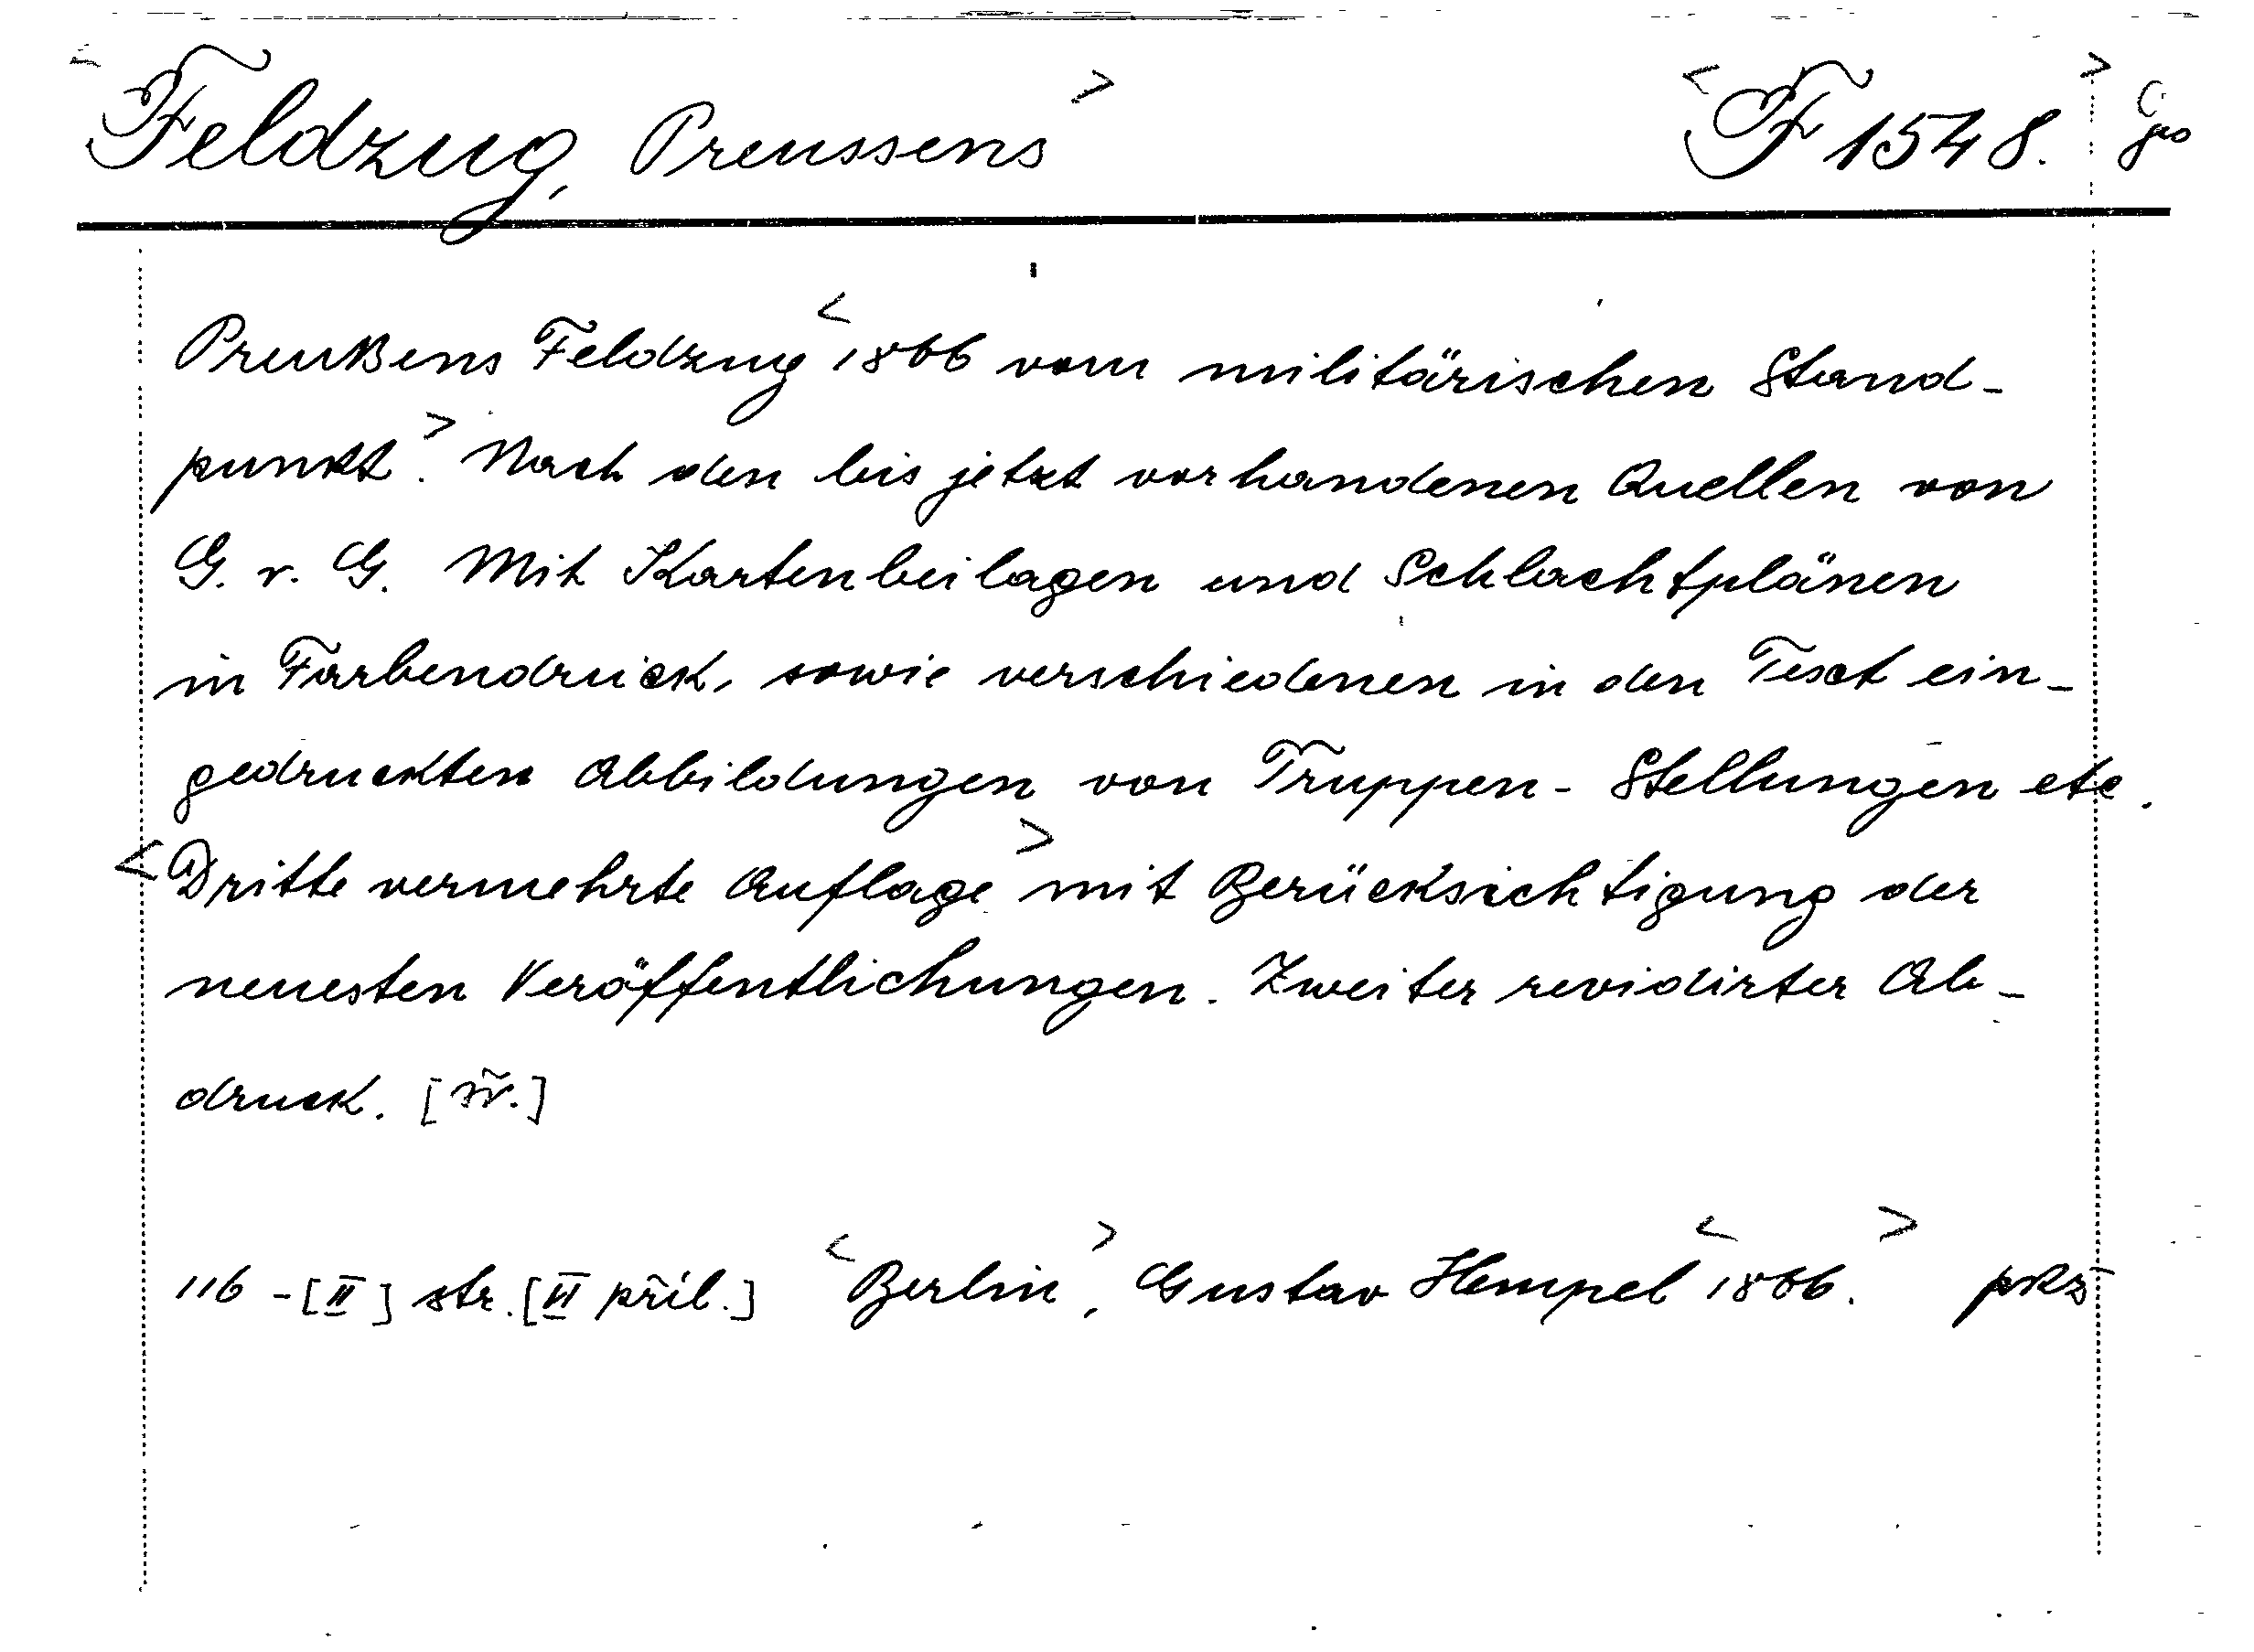 < Feldzug, Preussens > < F 1548. >
Preußens Feldzug < 1866 vom militärischen Stand-
punkt >. Nach den bis jetzt vorhandenen Quellen von
G. v. G. Mit Kartenbeilagen und Schlachtplänen
in Farbendruck, sowie verschiedenen in den Text ein-
gedruckten Abbildungen von Truppen-Stellungen etc.
< Dritte vermehrte Auflage > mit Berücksichtigung der
neuesten Veröffentlichungen. Zweiter revidirter Ab-
druck.
116 - [II] str. [VI příl.] < Berlin >, Gustav Hempel < 1866. > pks